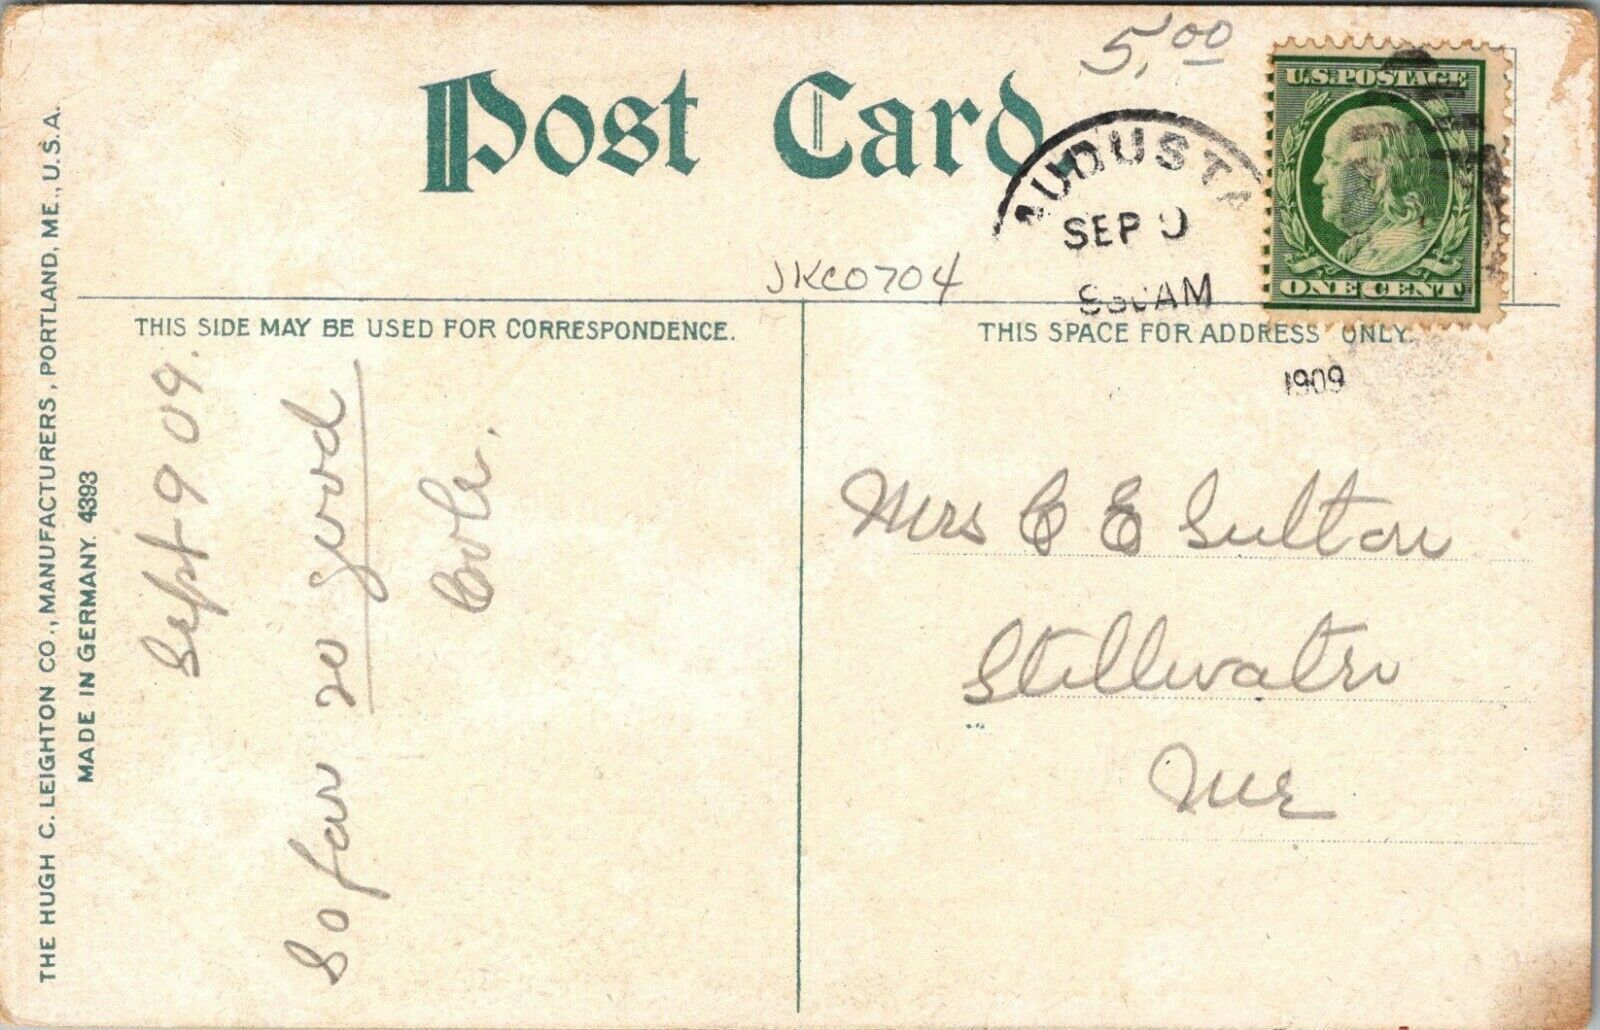 Post Card
5.00
U.S. POSTAGE
ONE CENT
AUGUSTA
SEP 9
AM
1909
JKC0704
THIS SIDE MAY BE USED FOR CORRESPONDENCE.
THIS SPACE FOR ADDRESS ONLY.
THE HUGH C. LEIGHTON CO., MANUFACTURERS, PORTLAND, ME., U.S.A.
MADE IN GERMANY. 4393
Sept 9 09.
So far so good
Cole.
Mrs C E Sutton
Stillwater
Me